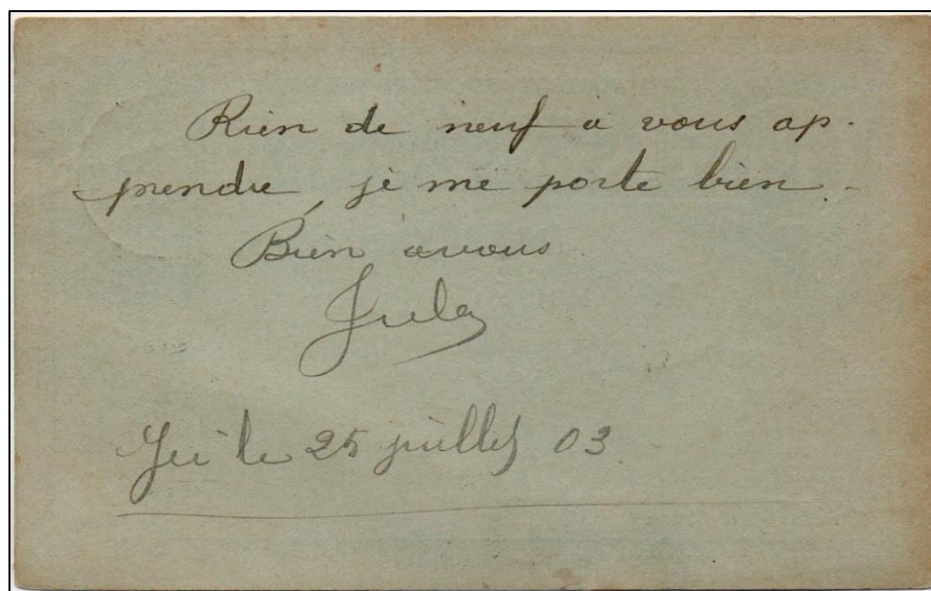 Rien de neuf à vous ap-
prendre, je me porte bien.
Bien à vous
Jules
le 25 juillet 03